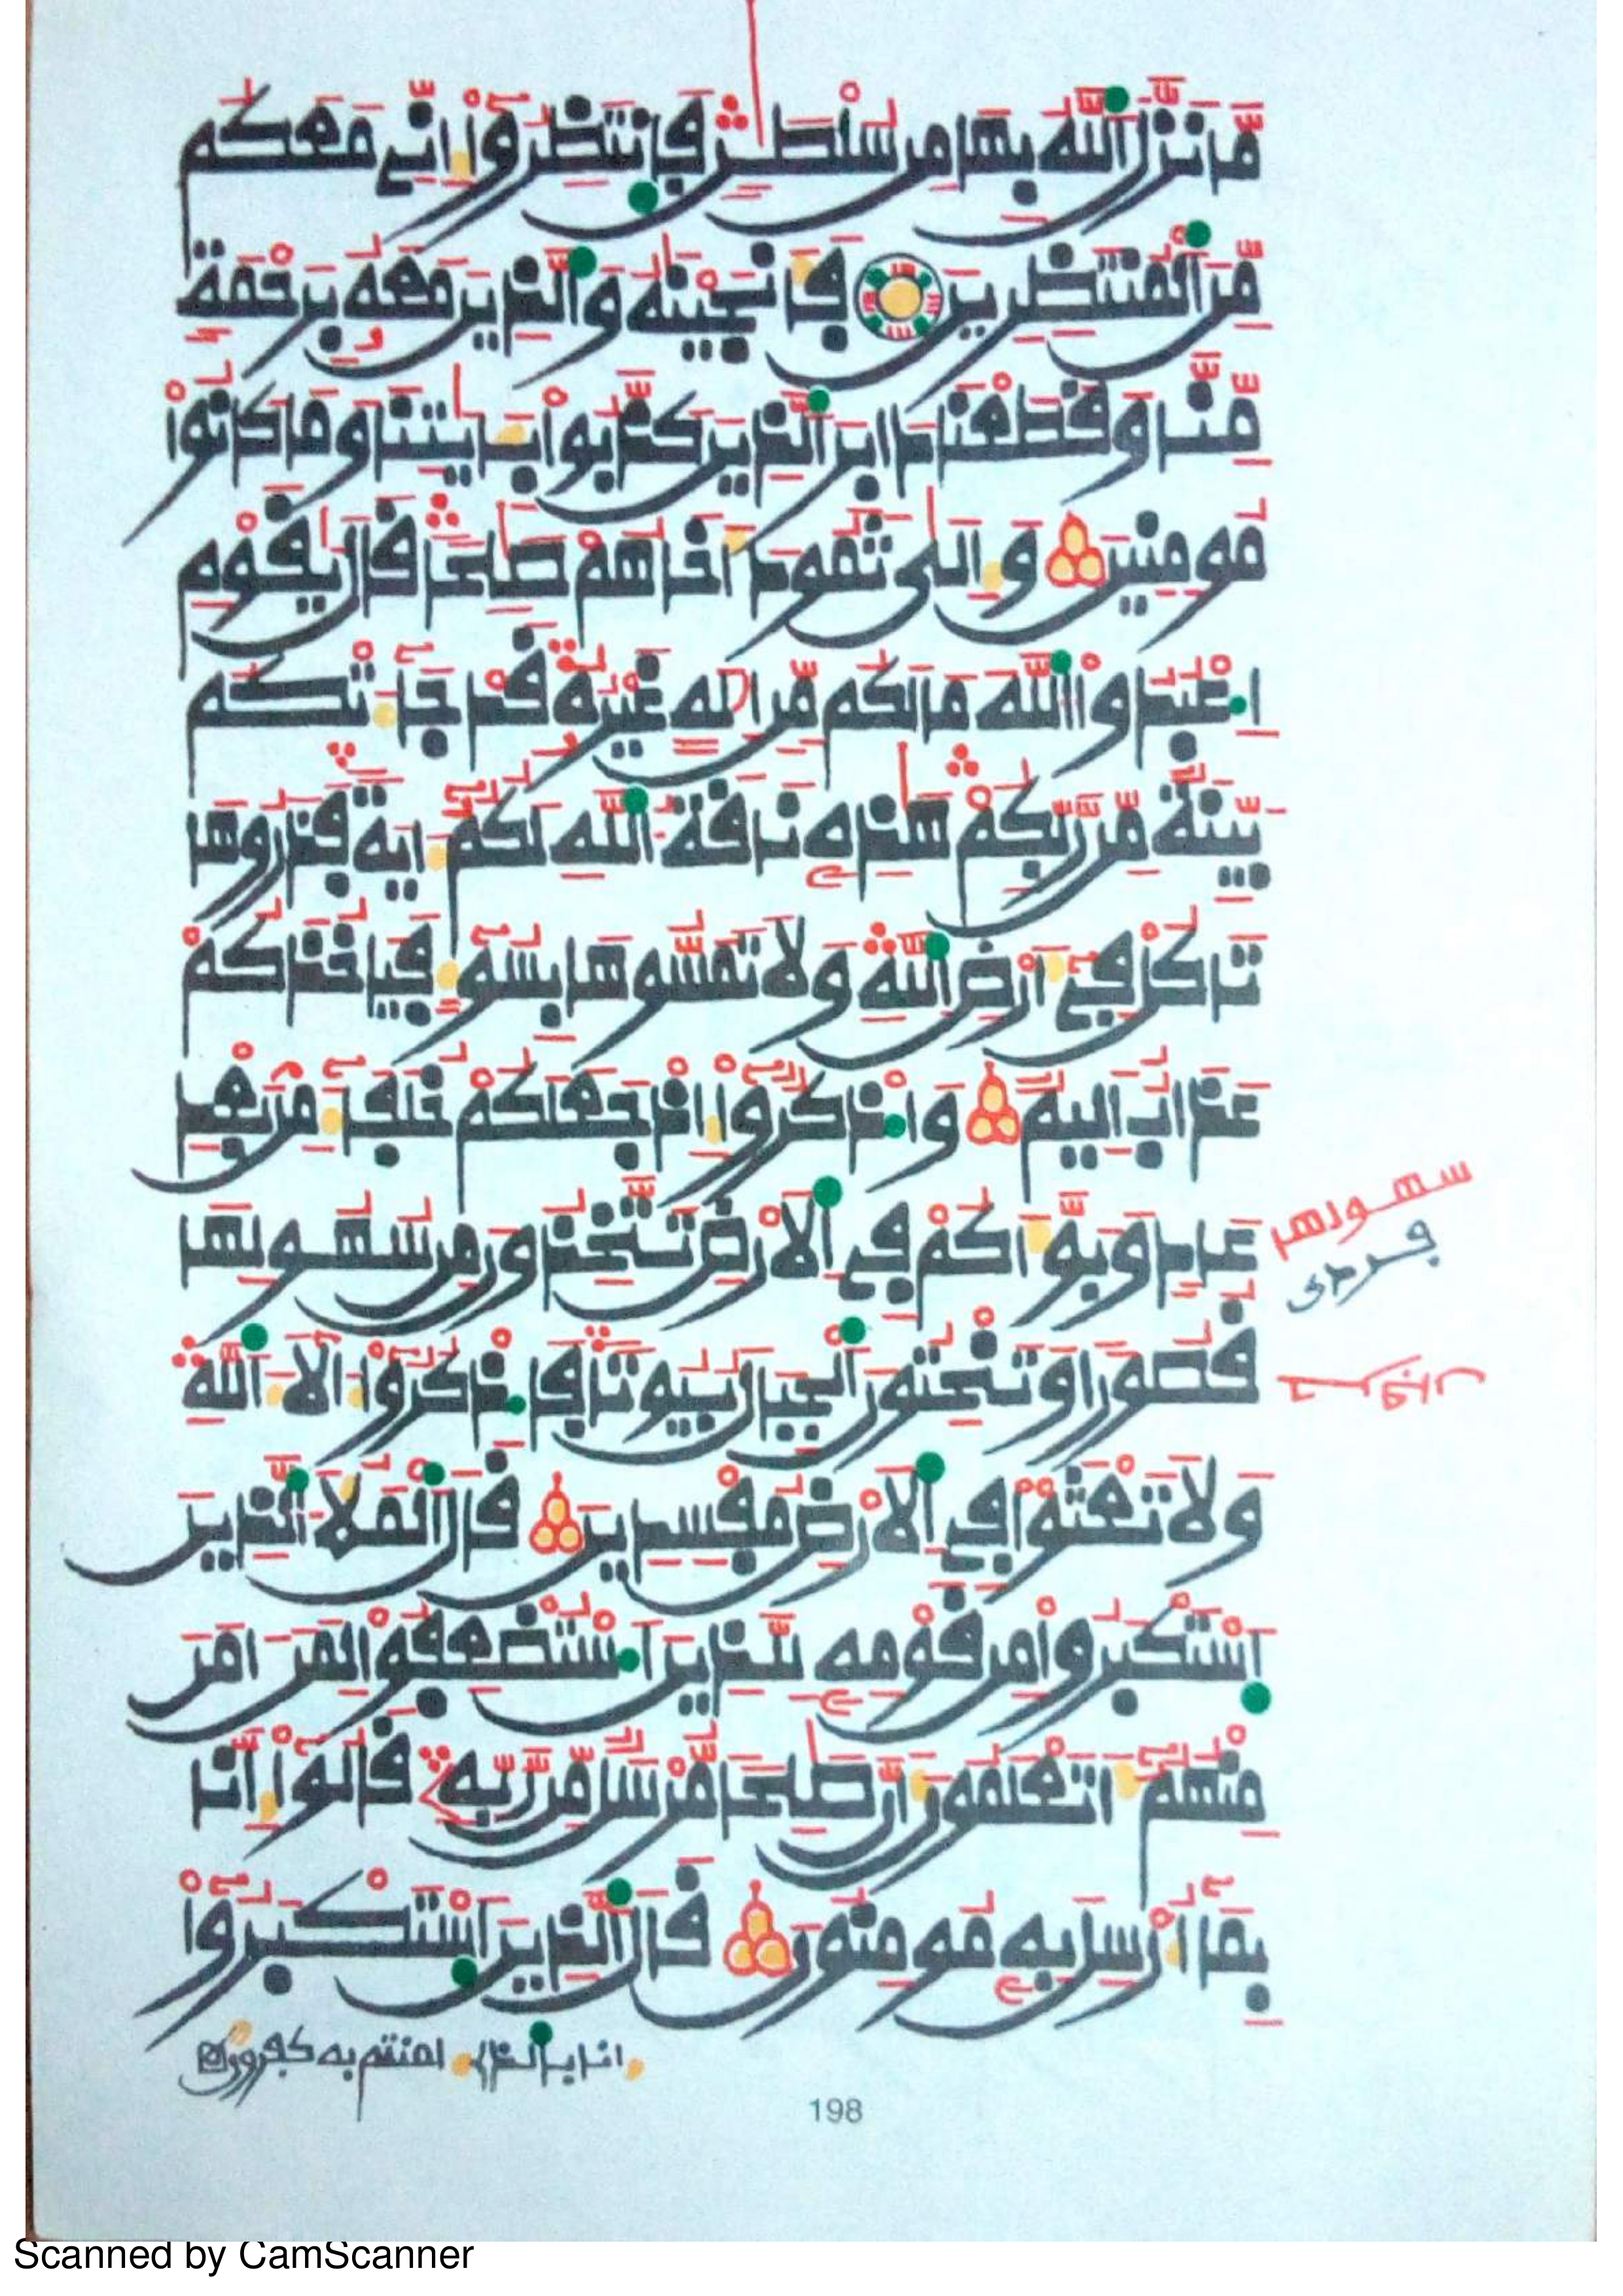 مَّا نَزَّلَ اَللَّهُ بِهَا مِن سُلْطَٰنٖ فَانتَظِرُوٓاْ إِنِّے مَعَكُم
مِّنَ اَلْمُنتَظِرِينَ فَأَنجَيْنَٰهُ وَالذِينَ مَعَهُۥ بِرَحْمَةٖ
مِّنَّا وَقَطَعْنَا دَابِرَ اَلذِينَ كَذَّبُواْ بِـَٔايَٰتِنَا وَمَا كَانُواْ
مُومِنِينَ وَإِلَىٰ ثَمُودَ أَخَاهُمْ صَٰلِحاٗ قَالَ يَٰقَوْمِ
اِ۟عْبُدُواْ اُللَّهَ مَا لَكُم مِّنِ اِلَٰهٍ غَيْرُهُۥ قَدْ جَآءَتْكُم
بَيِّنَةٞ مِّن رَّبِّكُمْ هَٰذِهِۦ نَاقَةُ اُللَّهِ لَكُمُۥٓ ءَايَةٗ فَذَرُوهَا
تَاكُلْ فِےٓ أَرْضِ اِللَّهِ وَلَا تَمَسُّوهَا بِسُوٓءٖ فَيَاخُذَكُمْ
عَذَابٌ اَلِيمٞ وَاذْكُرُوٓاْ إِذْ جَعَلَكُمْ خُلَفَآءَ مِنۢ بَعْدِ
عَادٖ وَبَوَّأَكُمْ فِے اِلَارْضِ تَتَّخِذُونَ مِن سُهُولِهَا
سهولها
فردى
قُصُوراٗ وَتَنْحِتُونَ اَلْجِبَالَ بُيُوتاٗ فَاذْكُرُوٓاْ ءَالَآءَ اَللَّهِ
وَلَا تَعْثَوْاْ فِے اِلَارْضِ مُفْسِدِينَ قَالَ اَلْمَلَأُ اُلذِينَ
اَ۪سْتَكْبَرُواْ مِن قَوْمِهِۦ لِلذِينَ اَ۟سْتُضْعِفُواْ لِمَنَ اٰمَنَ
مِنْهُمُۥٓ أَتَعْلَمُونَ أَنَّ صَٰلِحاٗ مُّرْسَلٞ مِّن رَّبِّهِۦ قَالُوٓاْ إِنَّا
بِمَآ أُرْسِلَ بِهِۦ مُومِنُونَ قَالَ اَلذِينَ اَ۪سْتَكْبَرُوٓاْ
إنا بالذي ءامنتم به كفرون
198
Scanned by CamScanner